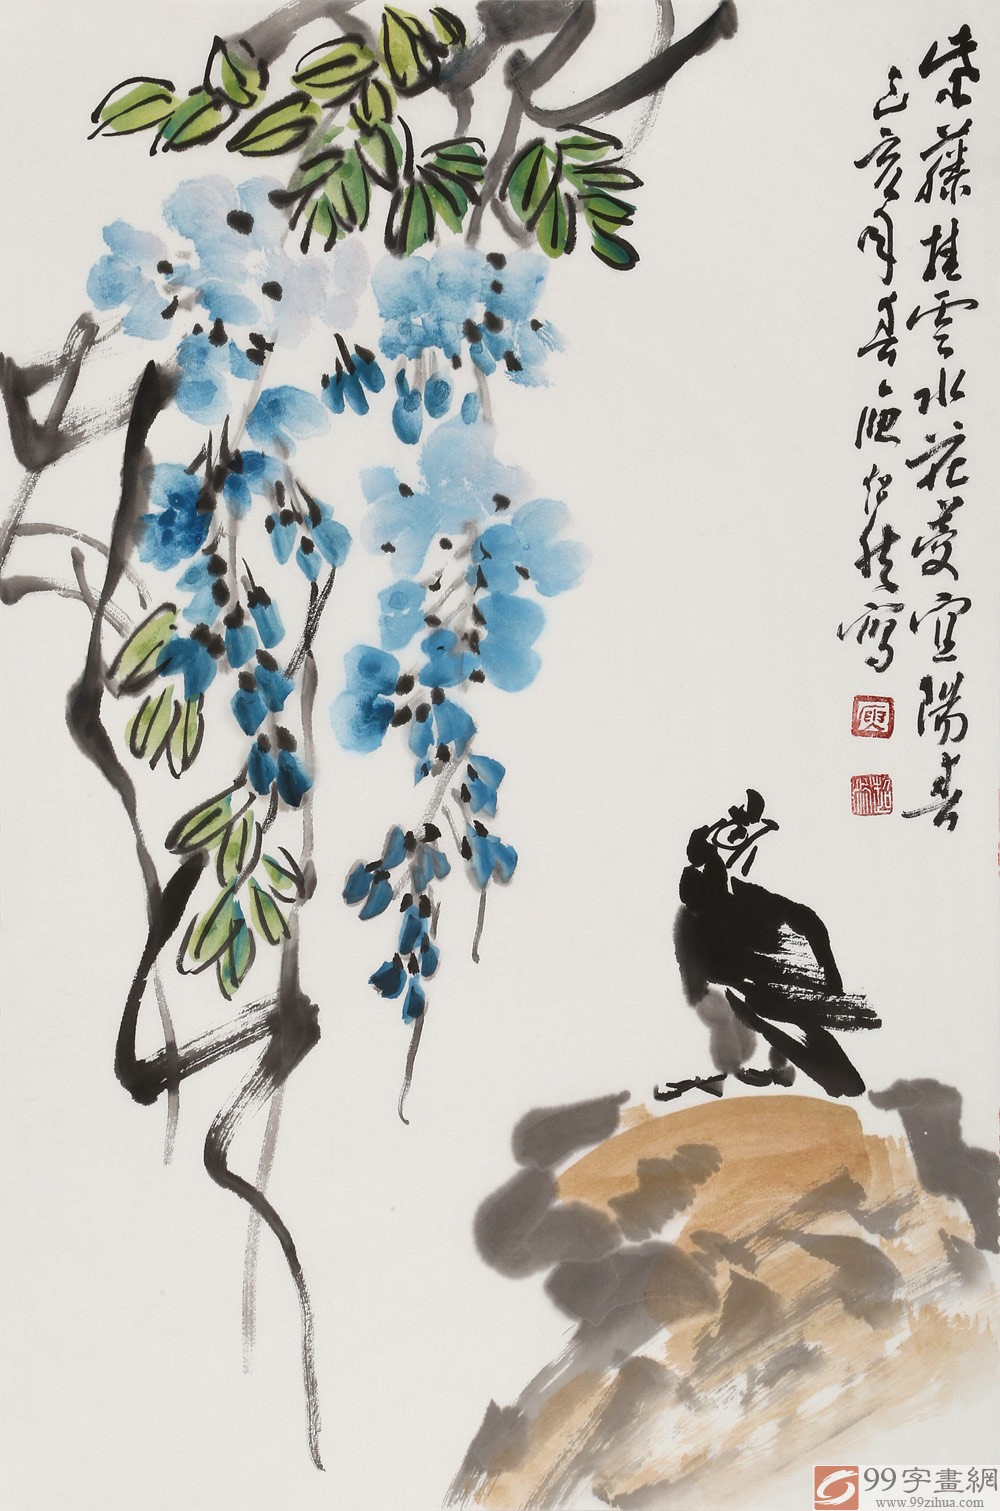 紫藤挂雲木花蔓宜陽春
己亥年春庾超然寫
99字畫網
www.99zihua.com